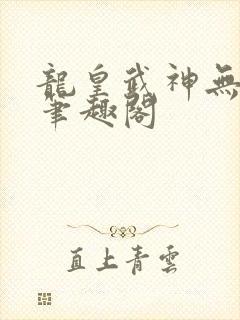 龍皇武神無
筆趣閣
直上青雲